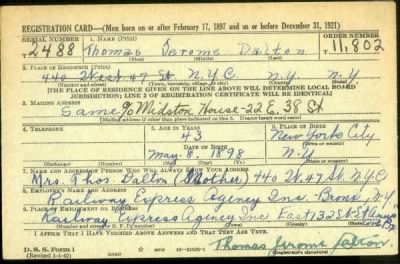 REGISTRATION CARD—(Men born on or after February 17, 1897 and on or before December 31, 1921)
SERIAL NUMBER 1. NAME (Print) ORDER NUMBER
T 2488 Thomas Jerome Dalton T 11,802
(First) (Middle) (Last)
2. PLACE OF RESIDENCE (Print)
440 West 47 St. N.Y.C. N.Y. N.Y.
(Number and street) (Town, township, village, or city) (County) (State)
[THE PLACE OF RESIDENCE GIVEN ON THE LINE ABOVE WILL DETERMINE LOCAL BOARD
JURISDICTION; LINE 2 OF REGISTRATION CERTIFICATE WILL BE IDENTICAL]
3. MAILING ADDRESS
Same % Midston House - 22 E. 38 St
[Mailing address if other than place indicated on line 2. If same insert word same]
4. TELEPHONE 5. AGE IN YEARS 6. PLACE OF BIRTH
43 New York City
DATE OF BIRTH (Town or county)
May 8, 1898 N.Y.
(Exchange) (Number) (Mo.) (Day) (Yr.) (State or country)
7. NAME AND ADDRESS OF PERSON WHO WILL ALWAYS KNOW YOUR ADDRESS
Mrs. Thos. Dalton (Mother) 440 W. 47 St. NYC
8. EMPLOYER'S NAME AND ADDRESS
Railway Express Agency Inc. - Bronx, N.Y.
9. PLACE OF EMPLOYMENT OR BUSINESS
Railway Express Agency Inc. East 132 St
(Number and street or R. F. D. number) (Town) (County) (State)
I AFFIRM THAT I HAVE VERIFIED ABOVE ANSWERS AND THAT THEY ARE TRUE.
Thomas Jerome Dalton.
D. S. S. Form 1 (Registrant's signature)
(Revised 1-1-42)